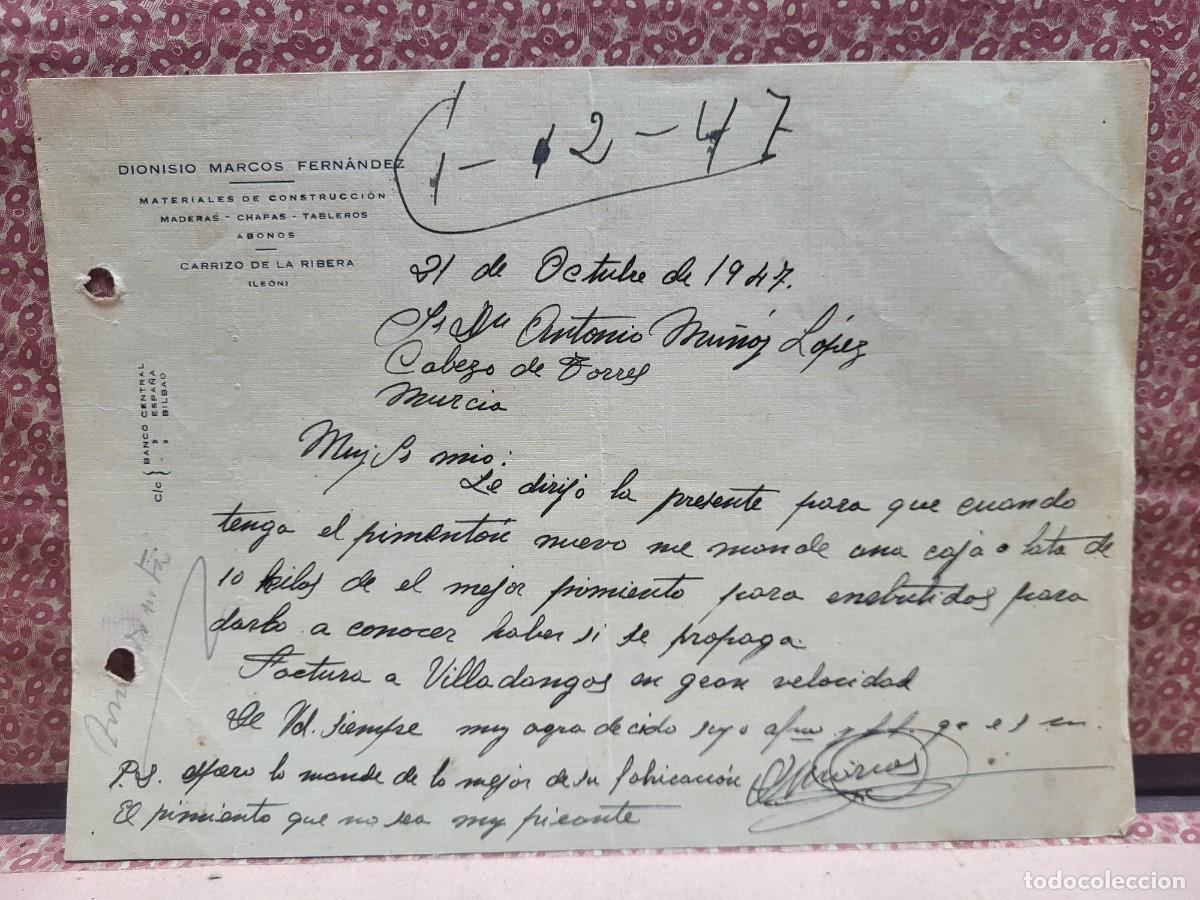 1-12-47
DIONISIO MARCOS FERNÁNDEZ
MATERIALES DE CONSTRUCCIÓN
MADERAS - CHAPAS - TABLEROS
ABONOS
CARRIZO DE LA RIBERA
(LEÓN)
C/c { BANCO CENTRAL
" ESPAÑA
" BILBAO
21 de Octubre de 1947.
Sr Dn Antonio Muñoz López
Cabezo de Torres
Murcia
Muy Sr mio:
Le dirijo la presente para que cuando
tenga el pimentón nuevo me mande una caja o lata de
10 kilos de el mejor pimiento para enbutidos para
darlo a conocer haber si se propaga.
Factura a Villadangos en gran velocidad
De Vd. siempre muy agradecido suyo afmo y s.s. q e s m.
P.S. espero lo mande de lo mejor de su fabricación
El pimiento que no sea muy picante
DMarcos
todocoleccion